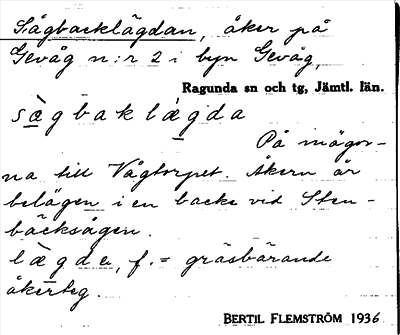 Sågbacklägdan, åker på
Gevåg n:r 2 i byn Gevåg,
Ragunda sn och tg, Jämtl. län.
sàgbaklàgda
På ägor-
na till Vågtorpet. Åkern är
belägen i en backe vid Sten-
bäcksågen.
làgde, f. = gräsbärande
åkerteg.
BERTIL FLEMSTRÖM 1936